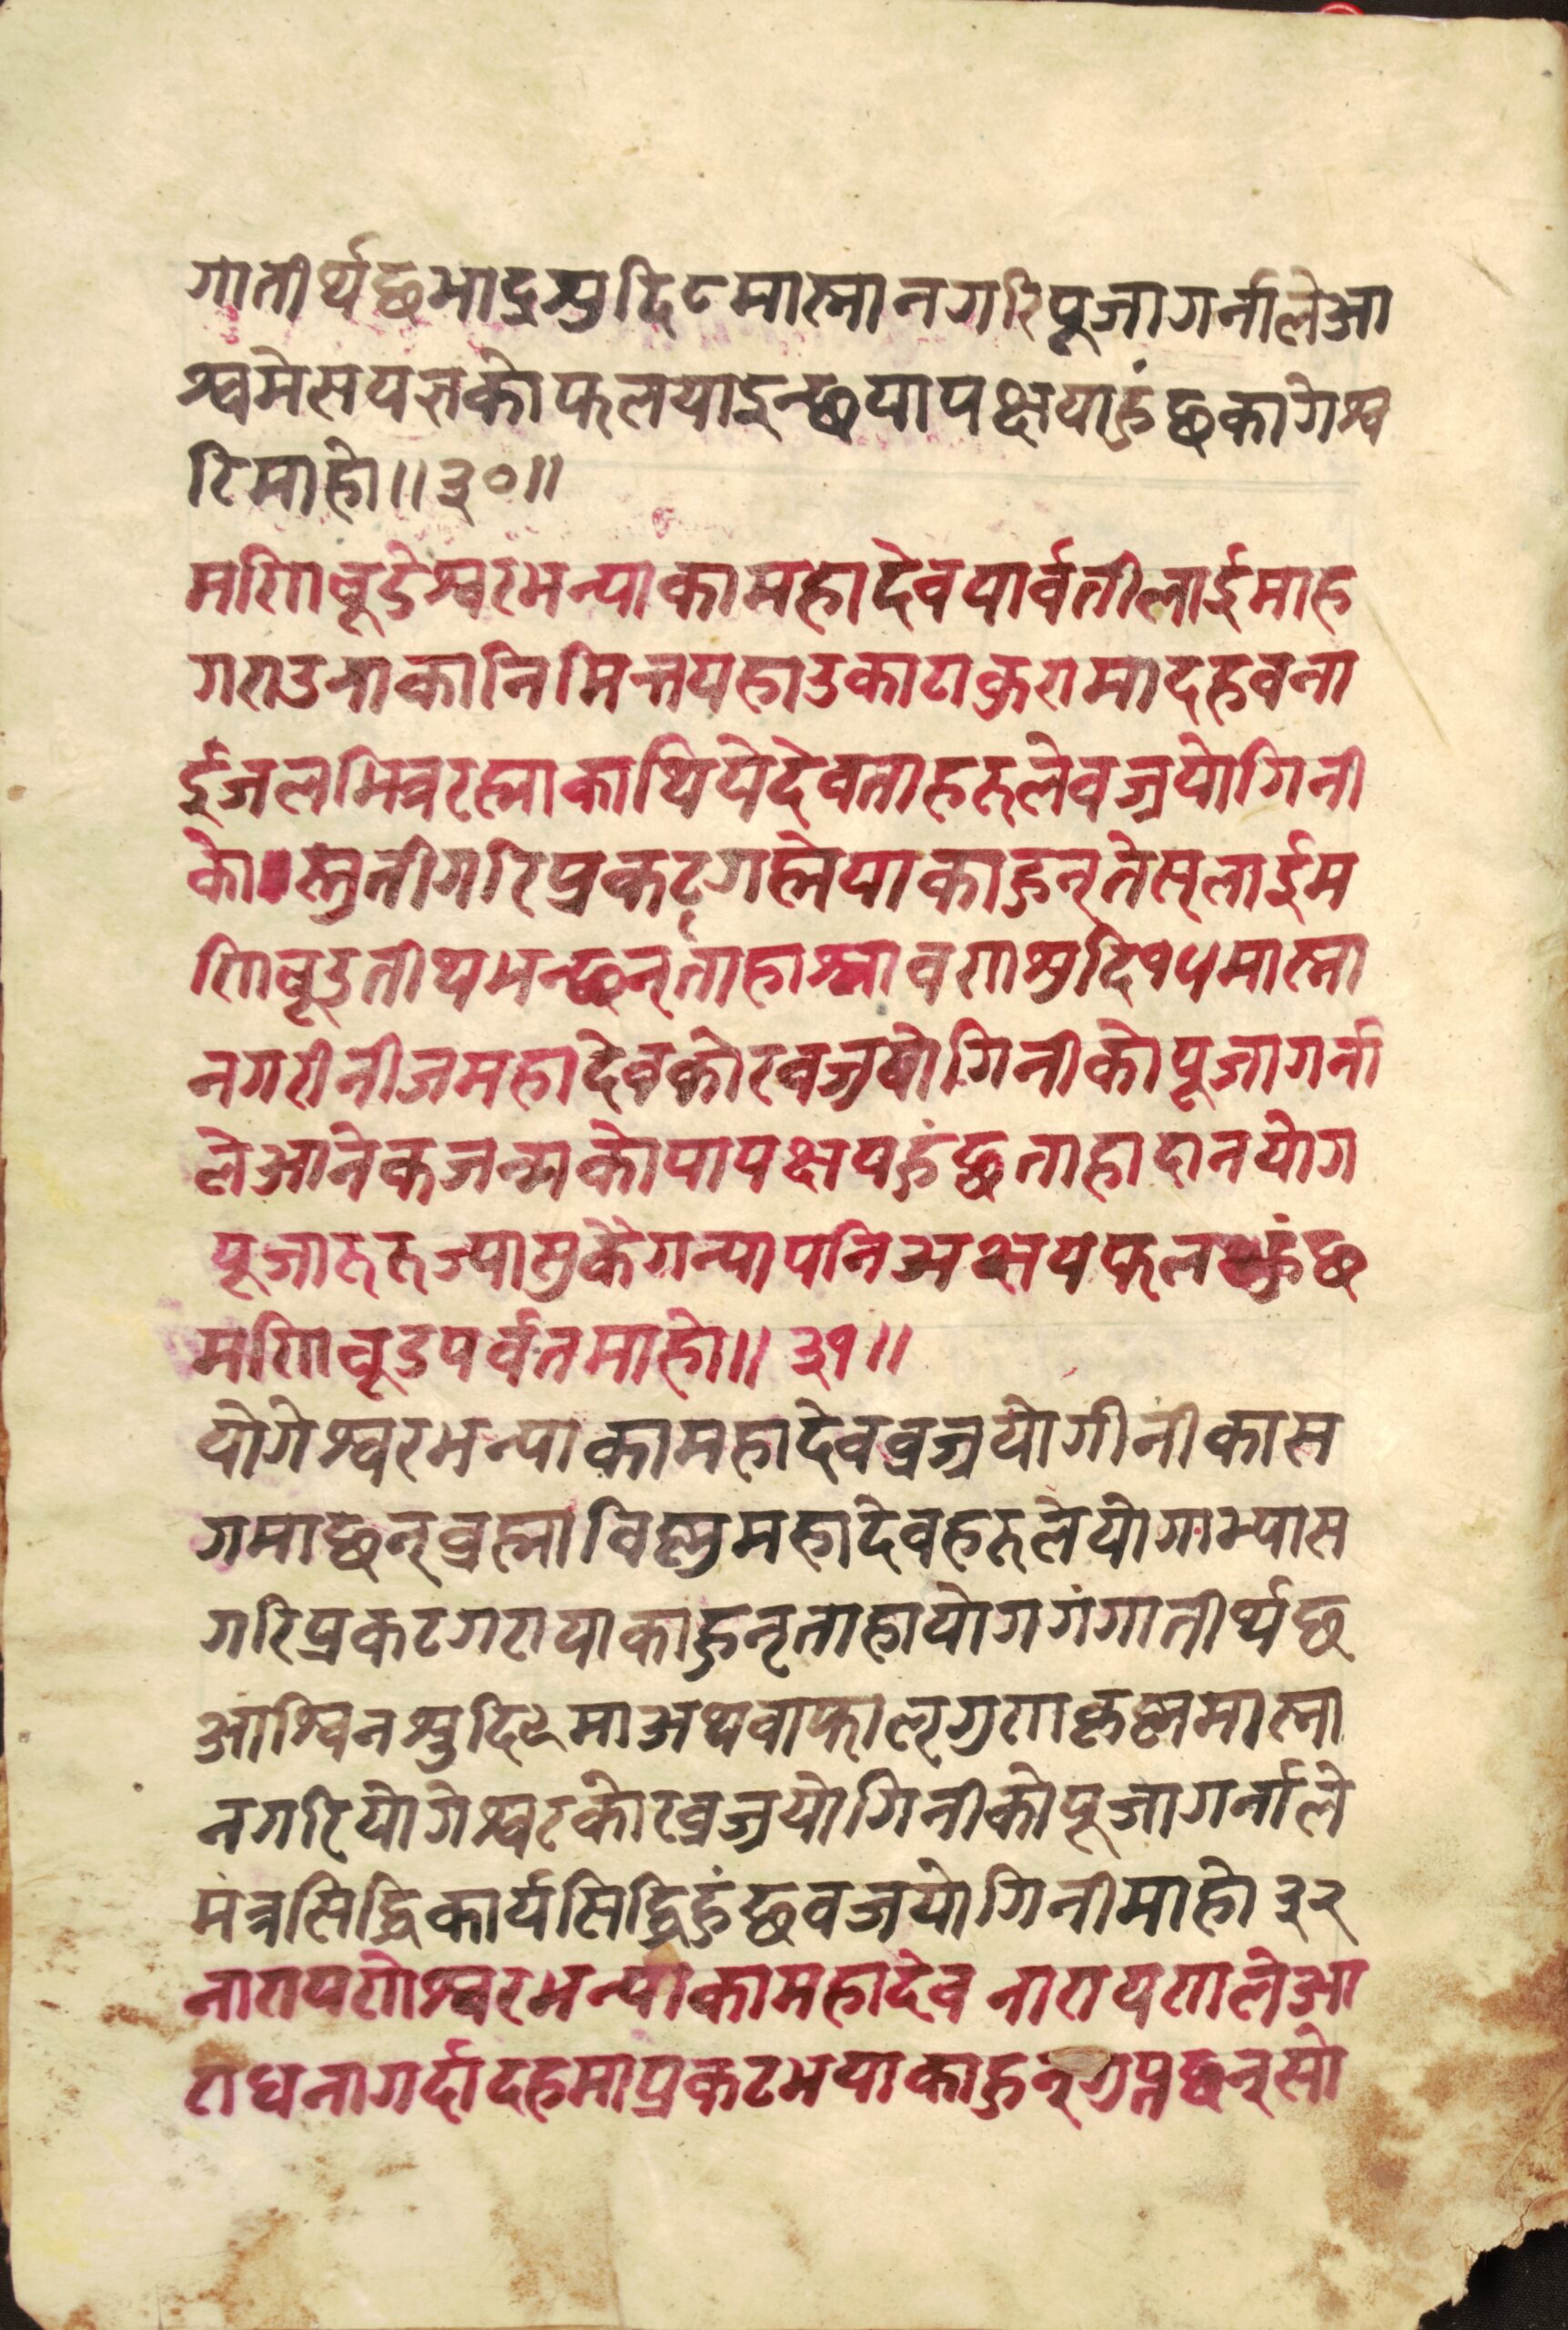 गातीर्थछभाद्रसुदि८मास्नानगरिपूजागर्नालेआ
श्वमेसयज्ञकोफलपाइन्छपापक्षयाहुंछकागेश्व
रिमाहो॥३०॥
मणिचूडेश्वरभन्याकामहादेवपार्वतीलाईमाह
गराउनाकानिमित्तपहाडकाटाकुरामादहवना
ईजलभित्ररह्माकाथियेदेवताहरुलेवज्रयोगिनी
कोस्तुतीगरिप्रकटगह्नेपाकाहुन्तेस्लाईम
णिचूडतीर्थभन्छन्ताहाश्रावणशुदि१५मास्ना
नगरीनीजमहादेवकोरवज्रयोगिनीकोपूजागर्ना
लेआनेकजन्मकोपापक्षयहुंछताहादानयोग
पूजारुरुज्पासुकैगन्यापनिअक्षयफलहुंछ
मणिचूडपर्वतमाहो॥३१॥
योगेश्वरभन्याकामहादेवव्रज्रयोगीनीकास
गमाछन्व्रह्माविष्णुमहादेवहरुलेयोगाभ्यास
गरिप्रकटगरायाकाहुन्ताहायोगगंगातीर्थछ
आश्विनशुदि८माअथवाफाल्गुणकृष्णमास्ना
नगरियोगेश्वरकोरव्रज्रयोगिनीकोपूजागर्नाले
मंत्रसिद्धिकार्यसिद्धिहुंछवज्रयोगिनीमाहो३२
नारायणेश्वरभन्याकामहादेवनारायणलेआ
राधनागर्दादहमाप्रकटभयाकाहुन्गुप्तछन्सो